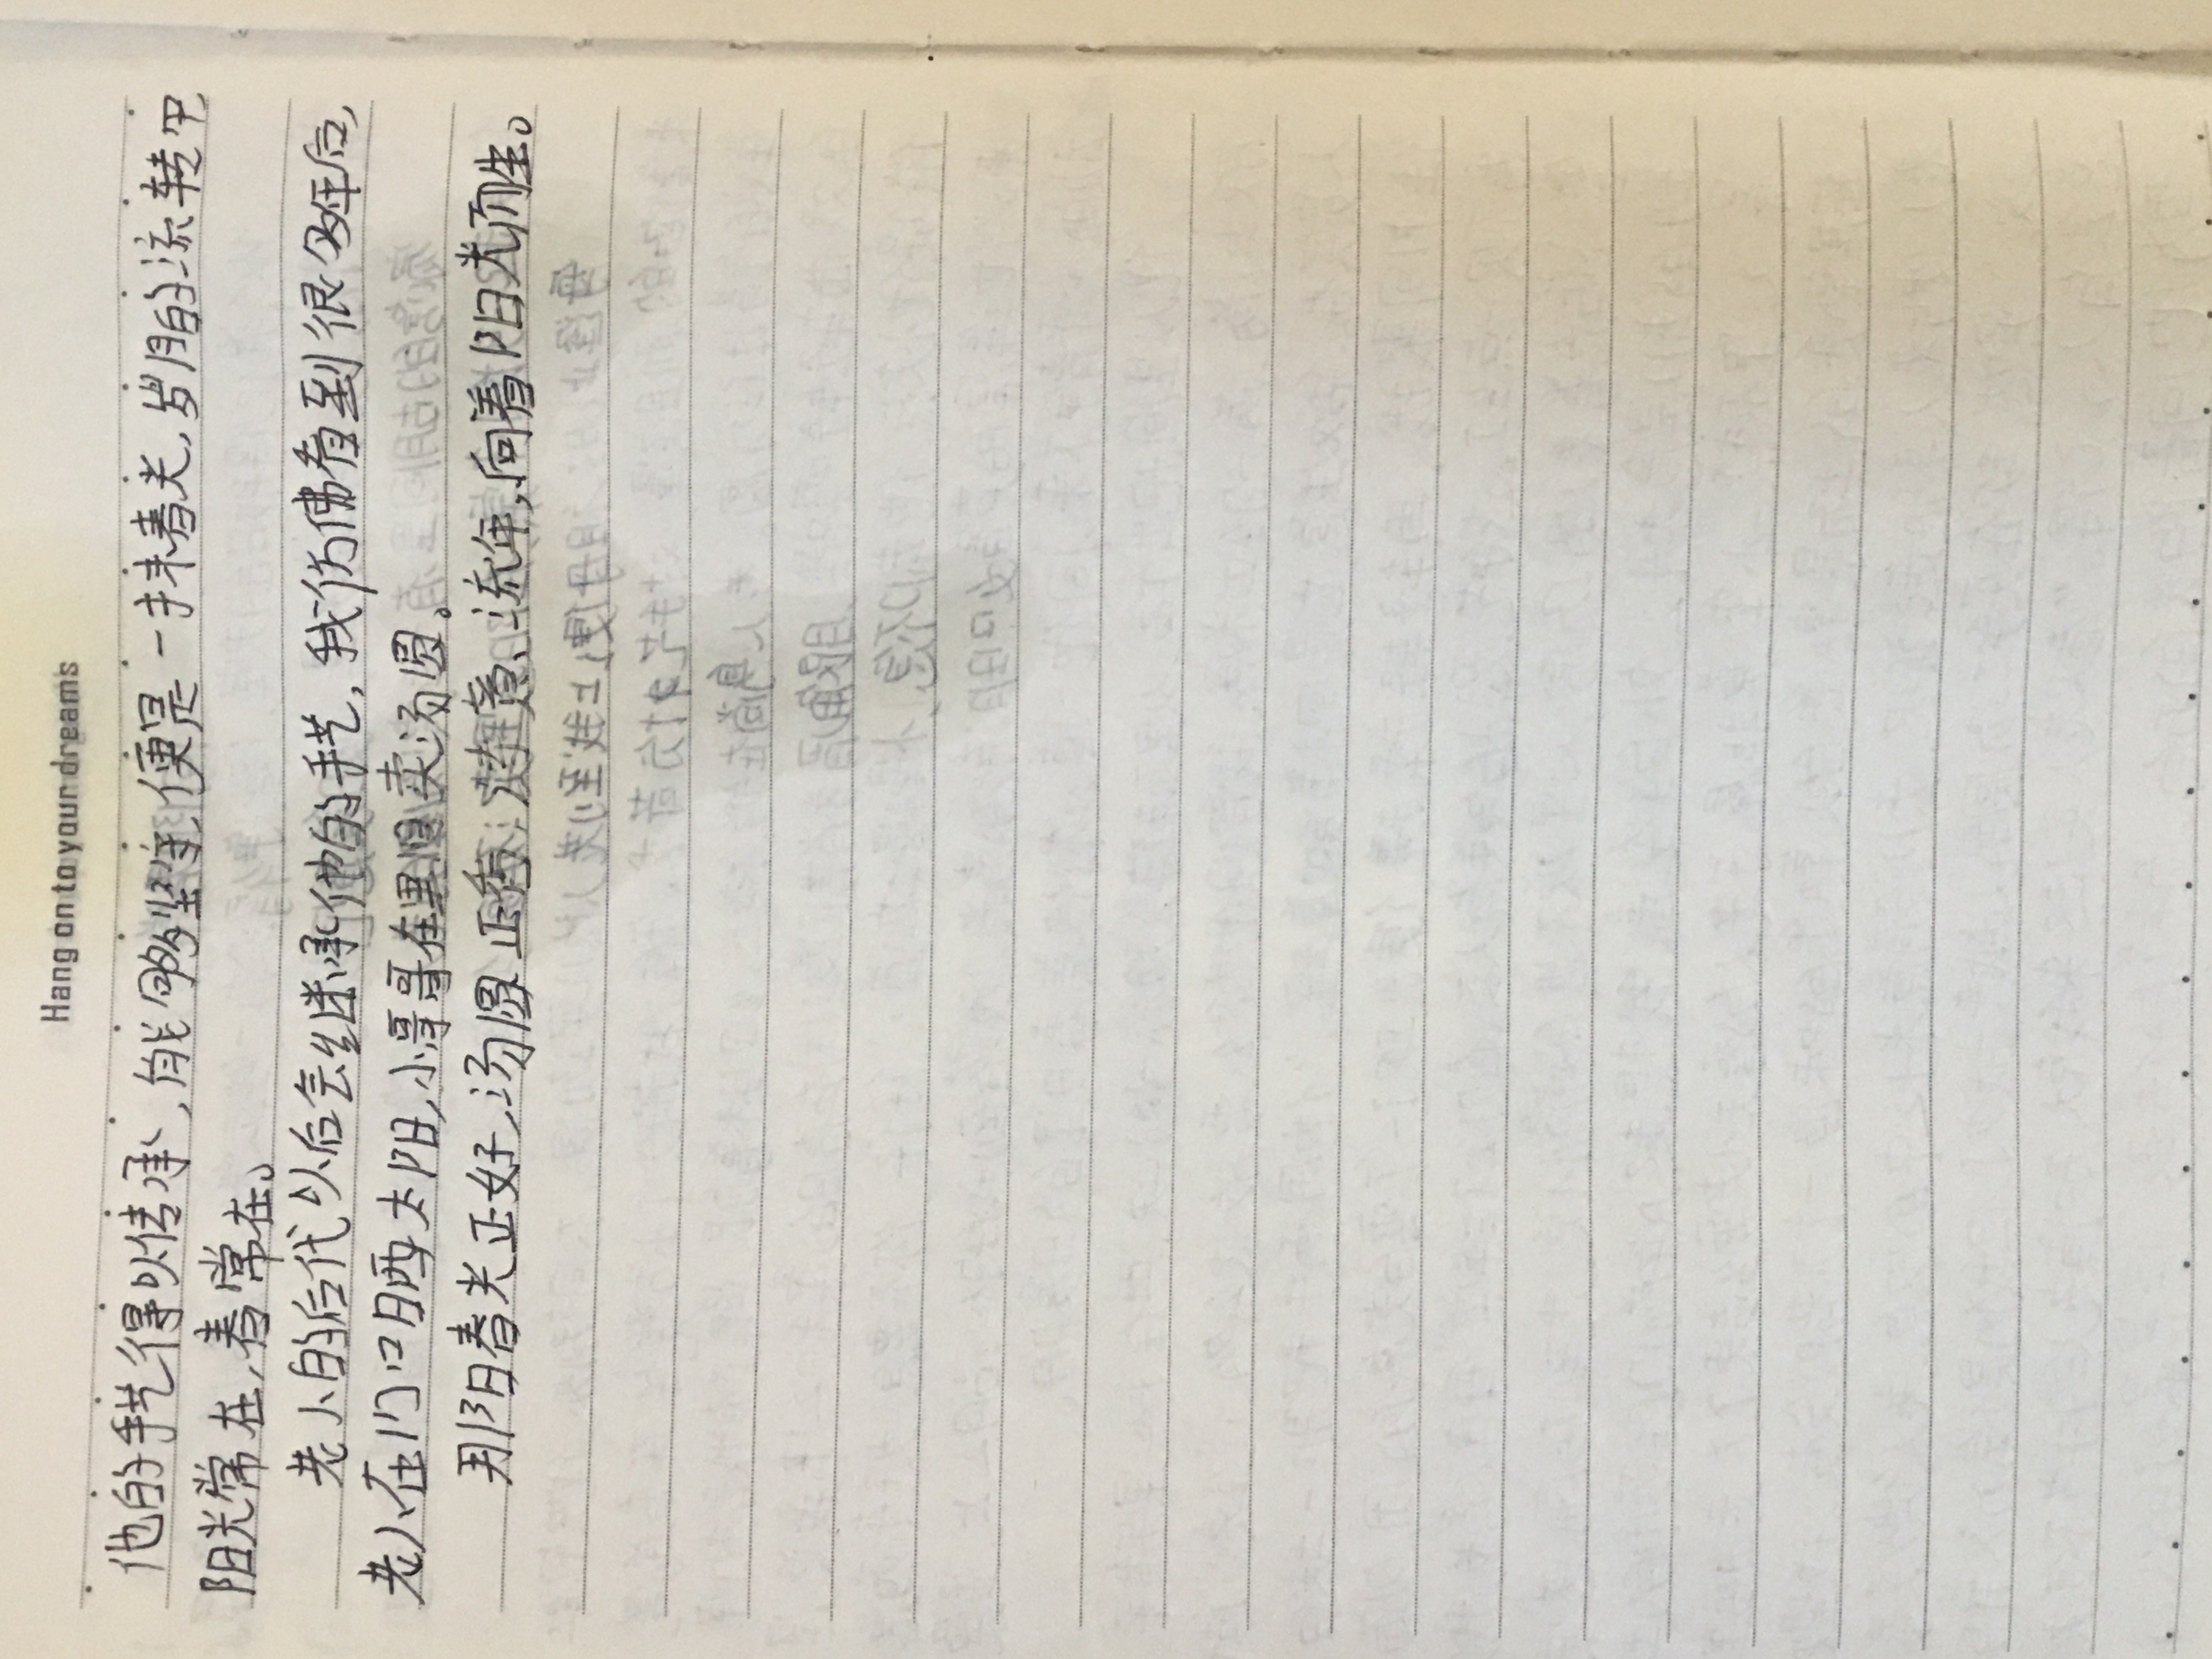 Hang on to your dreams
他的手艺得以传承,能够坚守,便是一抹春光,岁月的流转中
阳光常在,春常在。
老人的后代以后会继承他的手艺,我仿佛看到很多年后,
老人在门口晒太阳,小哥哥在里屋卖汤圆。
那阳春光正好,汤圆正香,惬意流年,向着阳光而坐。